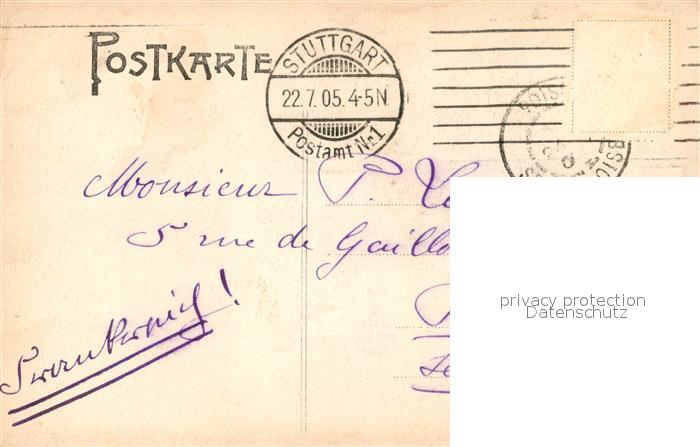 POSTKARTE
STUTTGART
22.7.05.4-5N
Postamt Nr.1
Monsieur P.
5 rue de Gaillo
Frankreich!
privacy protection
Datenschutz